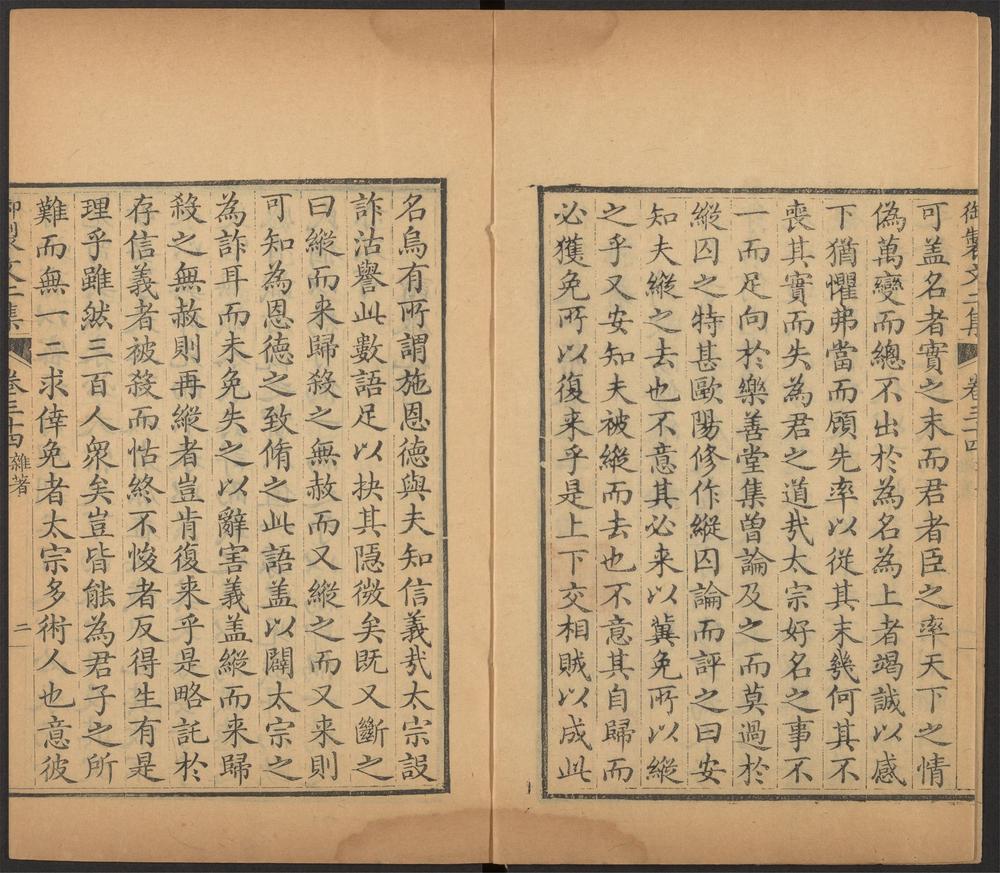 御製文二集 卷三十四
可盖名者實之末而君者臣之率天下之情
偽萬變而總不出於為名為上者竭誠以感
下猶懼弗當而顧先率以從其末幾何其不
喪其實而失為君之道㢤太宗好名之事不
一而足向於樂善堂集曾論及之而莫過於
縱囚之特甚歐陽修作縱囚論而評之曰安
知夫縱之去也不意其必来以冀免所以縱
之乎又安知夫被縱而去也不意其自歸而
必獲免所以復来乎是上下交相賊以成此
名烏有所謂施恩德與夫知信義㢤太宗設
詐沽譽此數語足以抉其隱微矣既又斷之
曰縱而来歸殺之無赦而又縱之而又来則
可知為恩德之致脩之此語盖以闢太宗之
為詐耳而未免失之以辭害義盖縱而来歸
殺之無赦則再縱者豈肯復来乎是略託於
存信義者被殺而怙終不悛者反得生有是
理乎雖然三百人衆矣豈皆能為君子之所
難而無一二求倖免者太宗多術人也意彼
御製文二集 卷三十四 雜著 二